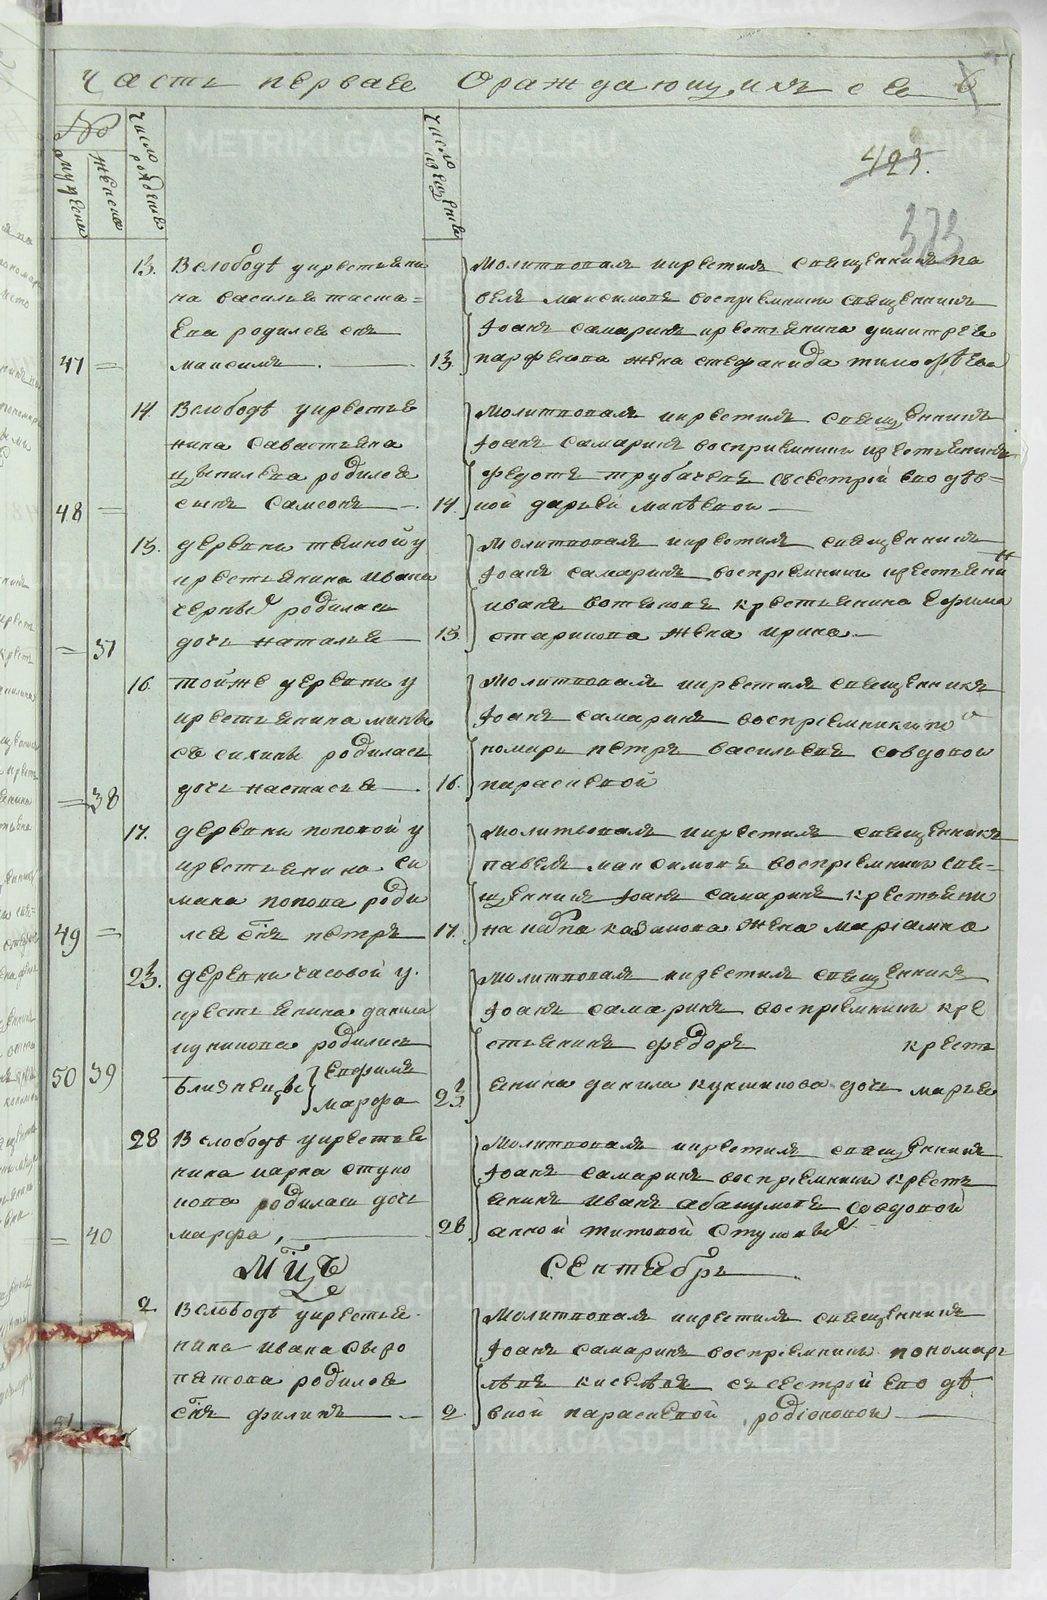 Часть первая Ораждающихъ ся 6
№
мужеска
женска
Число рожденія
Число крещенія
423.
373
13. Вслободѣ укрестьяни
на василья
ева родился снъ
47 = максимъ. 13.
Молитвовалъ икрестилъ священникъ па
велъ максимовъ воспріемники священникъ
Іоанъ самаринъ крестьянина димитрея
парфенова жена стефанида тимофѣева
14. Вслободѣ укрестья
нина савастьяна
родился
48 = сынъ Самсонъ 14.
Молитвовалъ икрестилъ священникъ
Іоанъ Самаринъ воспріемники крестьянинъ
Федотъ трубачевъ ссестрой его дѣв=
кой дарьей
15. деревни темной у
крестьянина ивана
родилась
= 37 дочь наталья 15.
Молитвовалъ икрестилъ священникъ
Іоанъ самаринъ воспріемники крестьянинъ
иванъ крестьянина Ефима
старикова жена ирина
16. тойже деревни у
крестьянина
родилась
= 38 дочь настасья 16.
Молитвовалъ икрестилъ священникъ
Іоанъ самаринъ воспріемники по
номарь петръ васильевъ совдовой
параскевой
17. деревни поповой у
крестьянина си
мана попова роди
49 = лся снъ петръ 17.
Молитвовалъ икрестилъ священникъ
павелъ максимовъ воспріемники свя=
щенникъ Іоанъ самаринъ крестьяни
на казакова жена маріамна
23. деревни часовой у
крестьянина данила
кукшинова родились
50 39 близнецы Евфимъ
марфа 23.
Молитвовалъ икрестилъ священникъ
Іоанъ самаринъ воспріемники кре
стьянинъ федоръ крестъ
янина данила кукшинова дочь марья
28 Вслободѣ укрестья
нина карпа стуко
кова родилась дочь
= 40 марфа, 28.
Молитвовалъ икрестилъ священникъ
Іоанъ самаринъ воспріемники крестъ
янинъ иванъ абакумовъ совдовой
анной титовой
Мцъ Сентябрь
2 Вслободѣ укрестья
нина ивана сыро
пятова родился
51 снъ филипъ 2
Молитвовалъ икрестилъ священникъ
Іоанъ самаринъ воспріемники пономарь
левъ киселевъ съсестрой его дѣ
вкой параскевой родіоновой